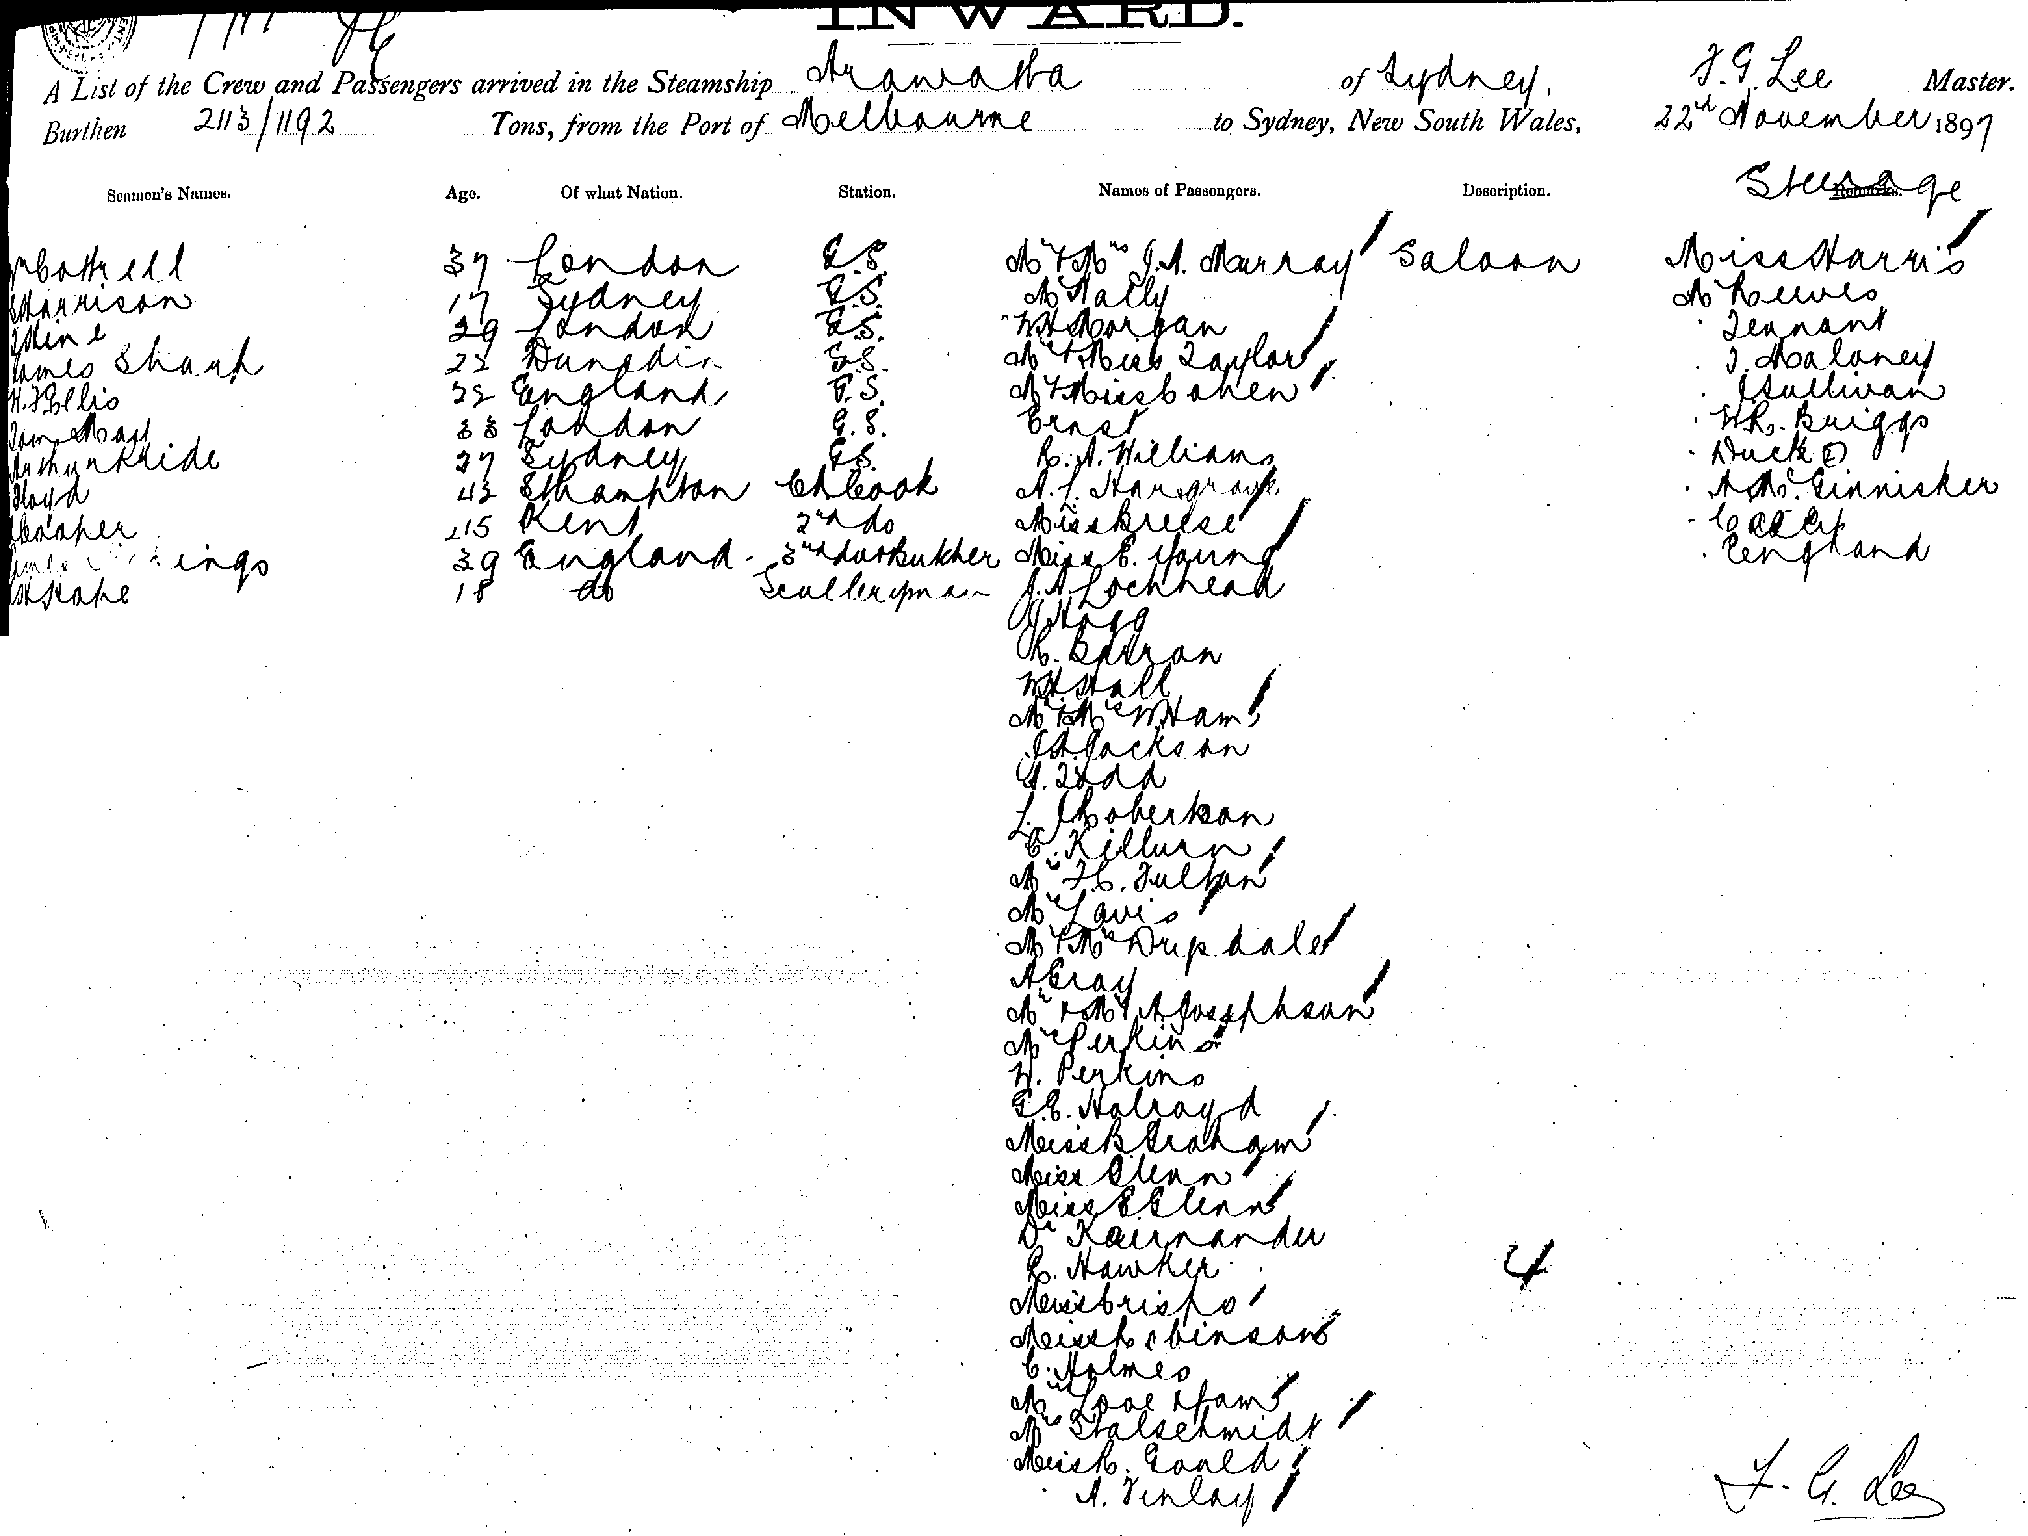 INWARD.
A List of the Crew and Passengers arrived in the Steamship Arawatta of Sydney, F. G. Lee Master.
Burthen 2113/1192 Tons, from the Port of Melbourne to Sydney, New South Wales, 22nd November 1897
Seamen's Names. Age. Of what Nation. Station. Names of Passengers. Description. Steerage
Cottrell 37 London G.S. Mr & Mrs J. A. Murray Saloon Miss Harris
Harrison 17 Sydney G.S. Mr Nally Mr Reeves
Hine 29 London G.S. W H Morgan Tennant
James Sharp 22 Dunedin G.S. Mr & Miss Taylor J. Maloney
Ellis 22 England G.S. Mr & Miss Cohen J Sullivan
33 London G.S. Ernst W R. Briggs
27 Sydney G.S. R. A. Williams Duck
Lloyd 42 SHampton Ch Cook A. L. Hargrave A Mc Ginnisker
Cooper 45 Kent 2nd do Miss Breese
39 England. 3rd do & Butcher Miss E. Young England
18 do Sculleryman J. A Lochhead
J Hogg
R. Barron
W H Hall
Mr & Mrs W Ham
Jackson
A. Todd
L. J Robertson
C. Killurn
Mrs F. C. Fulton
Mrs Lavis
Mr & Mrs Drysdale
A Gray
Mr & Mrs A Josephson
Mrs Perkins
W. Perkins
G. E. Holroyd
Miss B Graham
Miss Glenn
Miss E Glenn
Dr Kaernander
C. Hawker 4
Miss Crisp
Miss Robinson
C. Holmes
Mrs Loveham
Mrs Stalschmidt
Miss R. Gould
A. Finlay
F. G. Lee